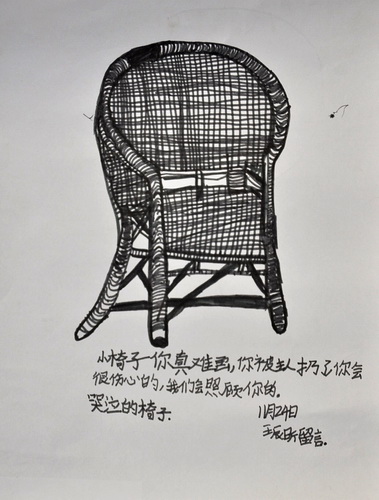 小椅子你真难画,你被主人扔了你会
很伤心的,我们会照顾你的.
哭泣的椅子.
11月24日
王辰昕留言.